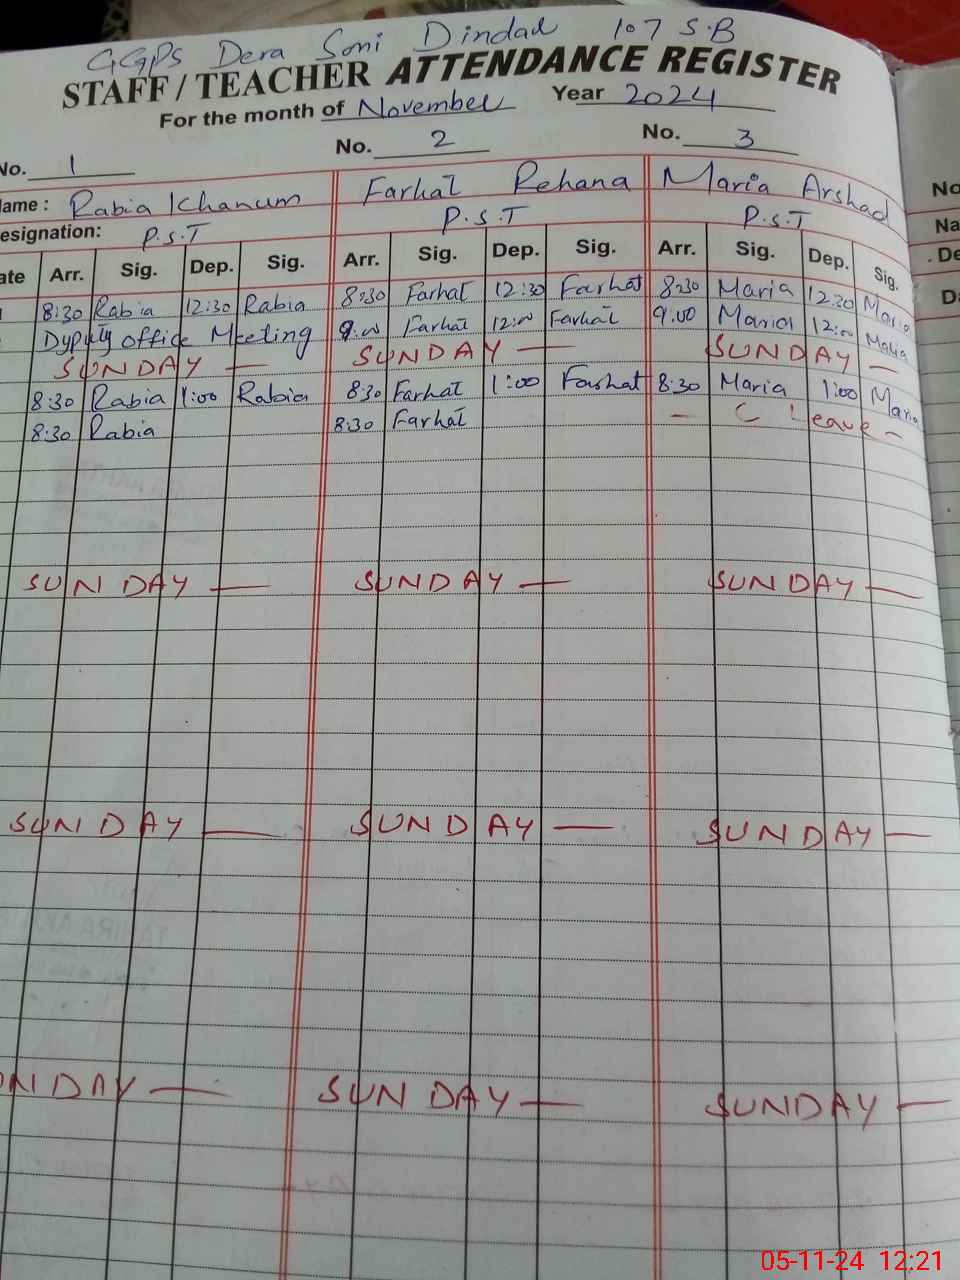 GGPS Dera Soni Dindad 107 S.B
STAFF / TEACHER ATTENDANCE REGISTER
For the month of November Year 2024
No. 1 No. 2 No. 3
ame : Rabia Khanum Farhat Rehana Maria Arshad
esignation: P.S.T P.S.T P.S.T
ate Arr. Sig. Dep. Sig. Arr. Sig. Dep. Sig. Arr. Sig. Dep. Sig.
8:30 Rabia 12:30 Rabia 8:30 Farhat 12:30 Farhat 8:30 Maria 12:30 Maria
Dyputy office Meeting 9:00 Farhat 12:00 Farhat 9:00 Maria 12:00 Maria
SUNDAY — SUNDAY — SUNDAY —
8:30 Rabia 1:00 Rabia 8:30 Farhat 1:00 Farhat 8:30 Maria 1:00 Maria
8:30 Rabia 8:30 Farhat — C Leave —
SUNDAY — SUNDAY — SUNDAY —
SUNDAY — SUNDAY — SUNDAY —
NDAY — SUNDAY — SUNDAY —
No
Na
De
Da
05-11-24 12:21